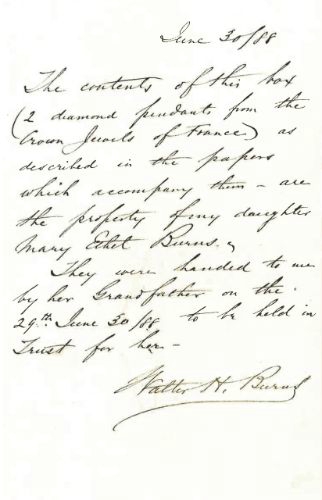 June 30/88
The contents of this box
(2 diamond pendants from the
Crown Jewels of France) as
described in the papers
which accompany them - are
the property of my daughter
Mary Ethel Burns.
They were handed to me
by her Grandfather on the
29th June 30/88 to be held in
Trust for her -
Walter H. Burns